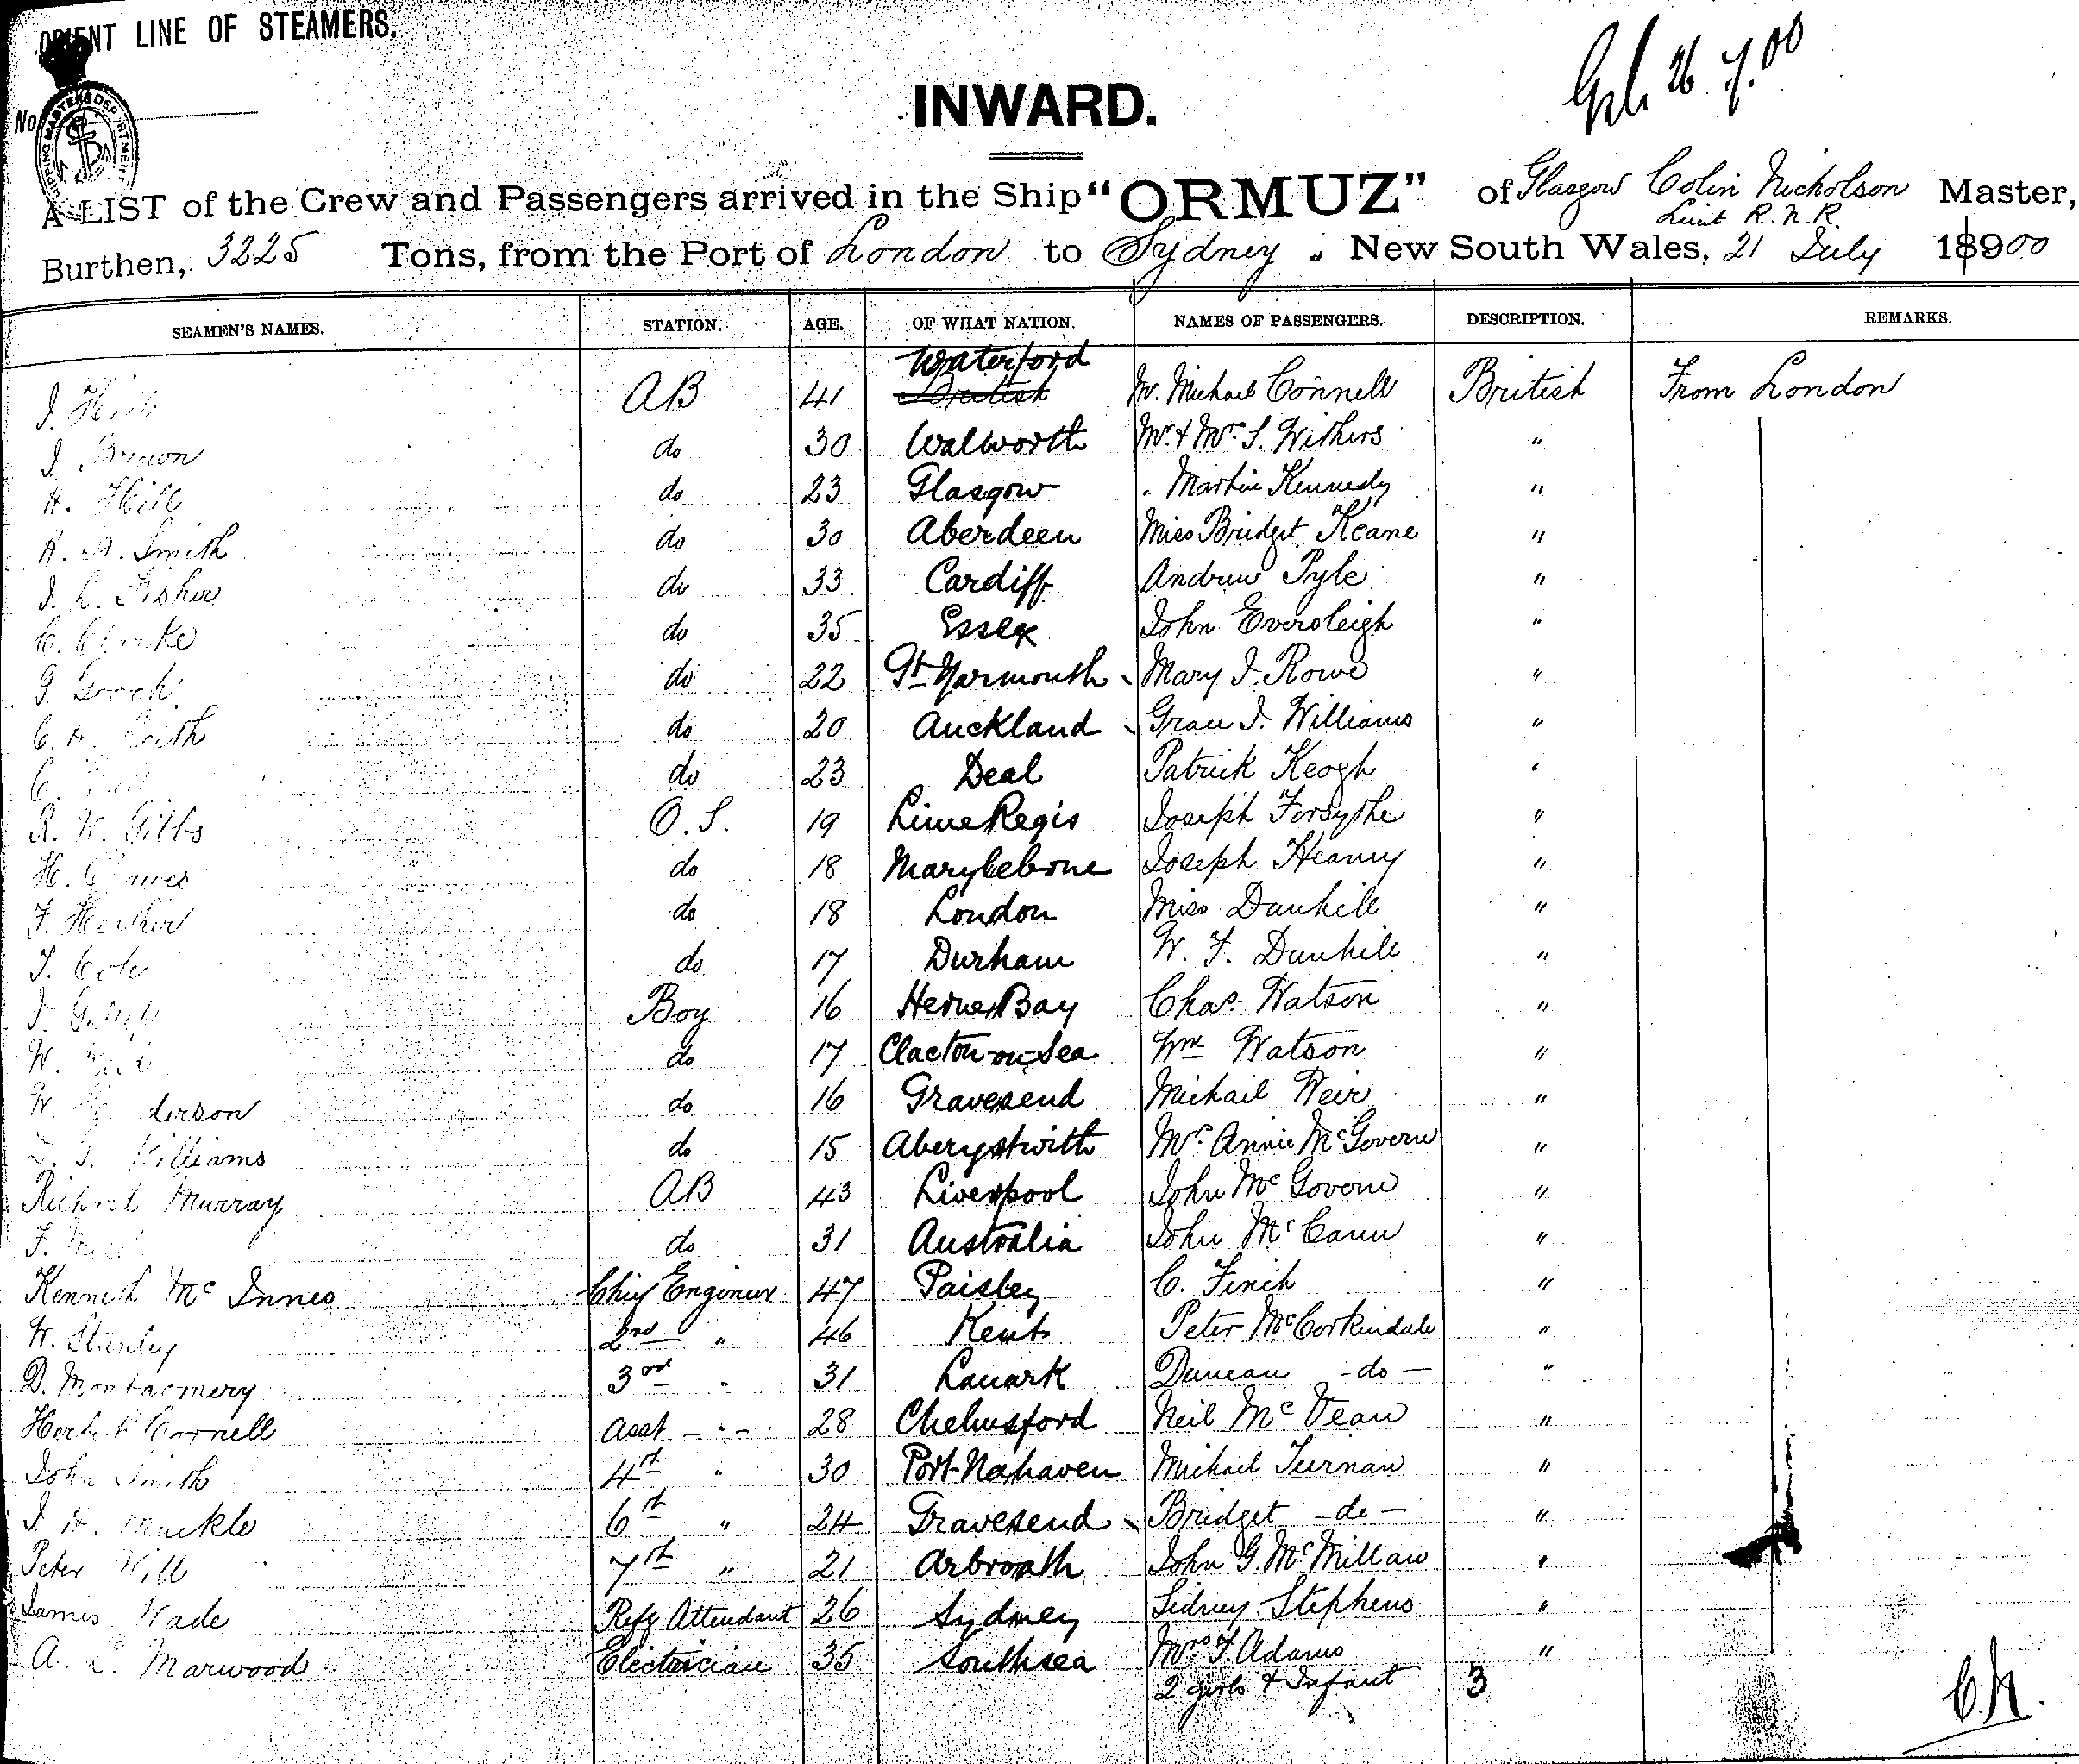 ORIENT LINE OF STEAMERS.
26.7.00
No
INWARD.
A LIST of the Crew and Passengers arrived in the Ship "ORMUZ" of Glasgow Colin Nicholson Master,
Lieut R.N.R.
Burthen, 3225 Tons, from the Port of London to Sydney, New South Wales, 21 July 18900
SEAMEN'S NAMES. STATION. AGE. OF WHAT NATION. NAMES OF PASSENGERS. DESCRIPTION. REMARKS.
Waterford
J. AB 41 British Mr. Michael Connell British From London
J. Brown do 30 Walworth Mr. & Mrs. S. Withers "
H. Hill do 23 Glasgow " Martin Kennedy "
Smith do 30 Aberdeen Miss Bridget Keane "
J. L. Fisher do 33 Cardiff Andrew Pyle "
C. Clarke do 35 Essex John Eversleigh "
G. Gooch do 22 Gt Yarmouth Mary J. Rowe "
C. H. do 20 Auckland Grace J. Williams "
C. do 23 Deal Patrick Keogh "
R. W. Gibbs O.S. 19 Lime Regis Joseph Forsythe "
H. do 18 Marylebone Joseph Heaney "
F. do 18 London Miss Dunhill "
T. Cole do 17 Durham W. F. Dunhill "
J. Boy 16 Herne Bay Chas. Watson "
W. do 17 Clacton-on-Sea Wm Watson "
W. do 16 Gravesend Michail Weir "
Williams do 15 Aberystwith Mrs. Annie McGovern "
Richard Murray AB 43 Liverpool John McGovern "
F. do 31 Australia John McCann "
Kenneth McInnes Chief Engineer 47 Paisley C. Finch "
W. Stanley 2nd " 46 Kent Peter McCorkindale "
D. Montgomery 3rd " 31 Lanark Duncan - do - "
Herbert Cornell Asst - " - 28 Chelmsford Neil McVean "
John Smith 4th " 30 Port Nahaven Michael Turnan "
J. H. 6th " 24 Gravesend Bridget - do - "
Peter Will 7th " 21 Arbroath John G. McMillan "
James Wade Refg Attendant 26 Sydney Sidney Stephens "
A. E. Marwood Electrician 35 Southsea Mrs. F. Adams "
2 girls & Infant 3
C.N.